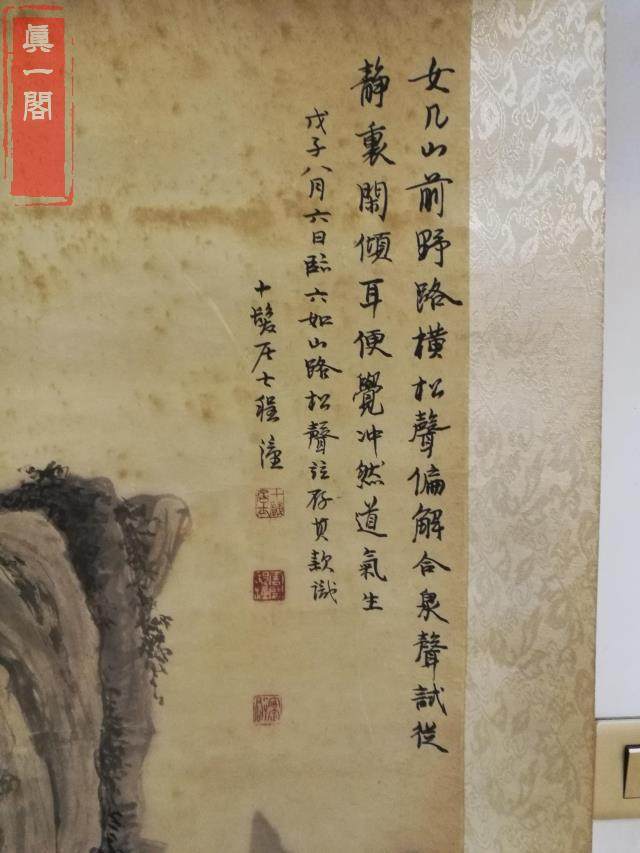 女几山前野路橫松聲偏解合泉聲試從
靜裏閑傾耳便覺冲然道氣生
戊子八月六日臨六如山路松聲並存其款識
十髮居士程潼
真一閣